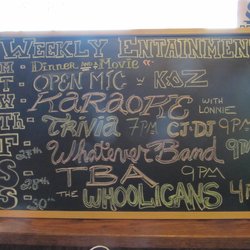 Weekly Entainment
M - Dinner and a Movie
T - OPEN MIC w/ KOZ
W - KARAOKE WITH LONNIE
T - Trivia 7PM CJ-DJ 9PM
F - 27th Whatever Band
S - 28th TBA 9PM
S - 30th THE WHOOLIGANS 4